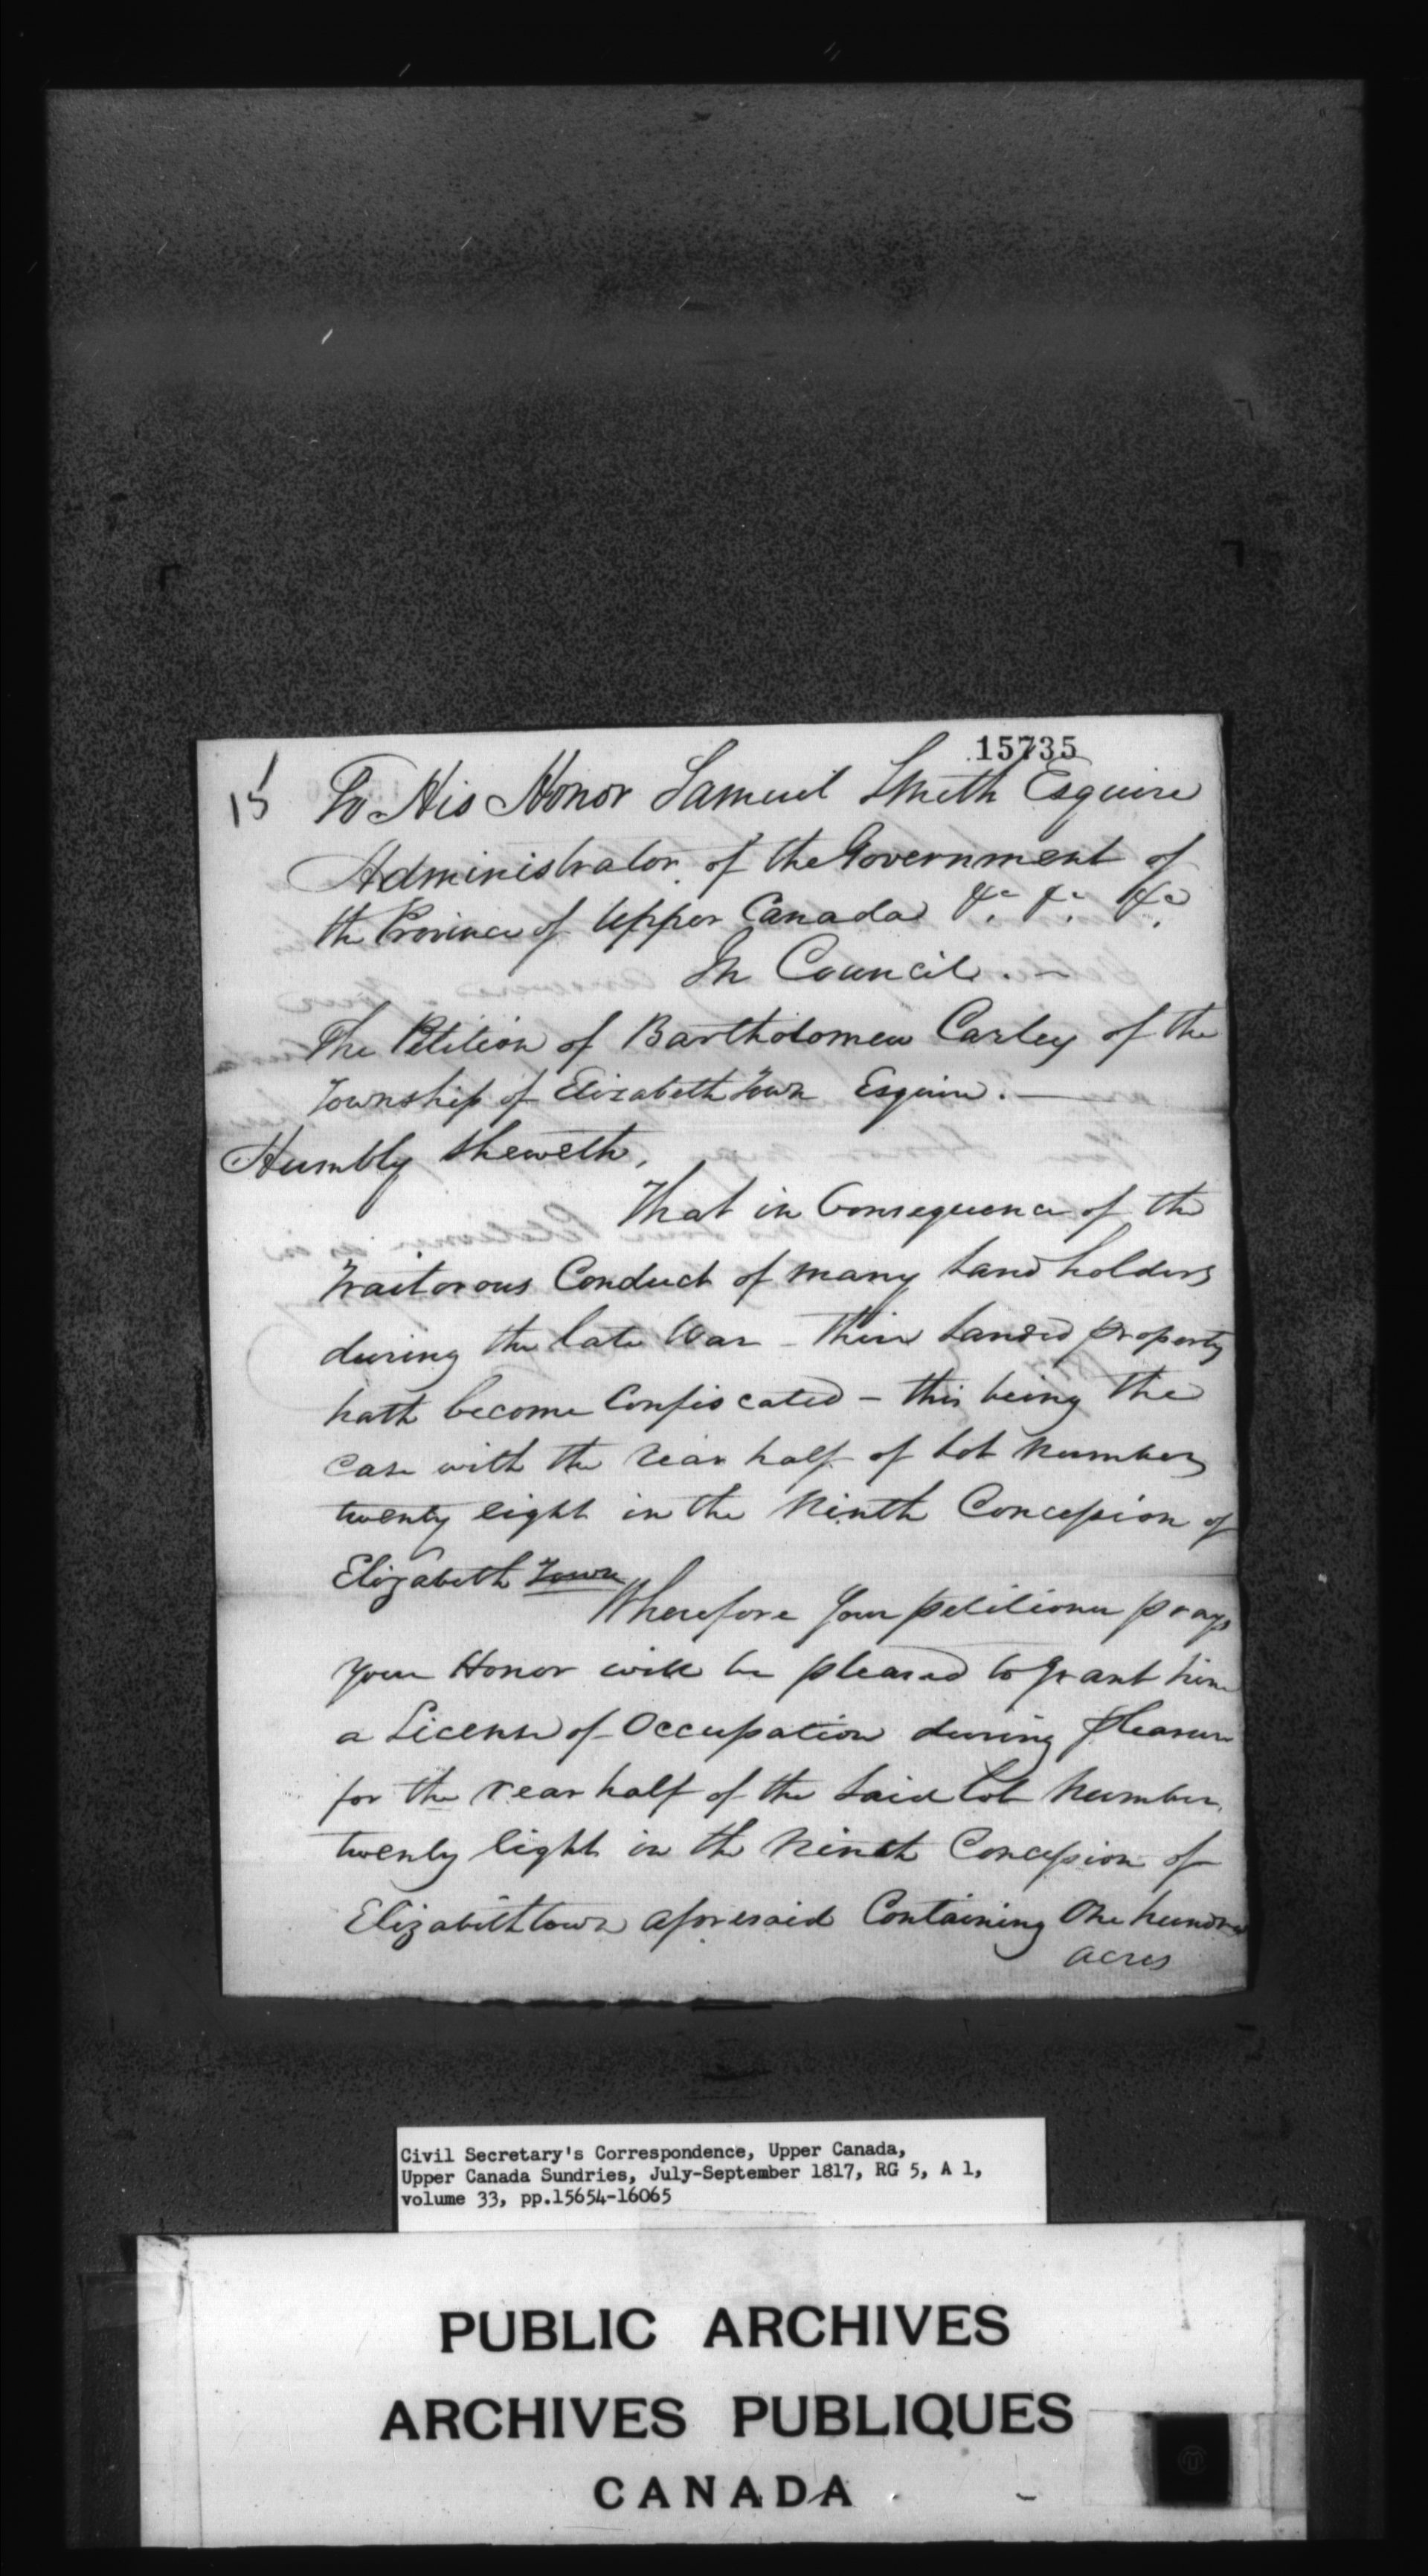 15735
15
To His Honor Samuel Smith Esquire
Administrator of the Government of
the Province of Upper Canada &c. &c. &c.
In Council. —
The Petition of Bartholomew Carley of the
Township of Elizabeth Town Esquire. —
Humbly Sheweth,
That in Consequence of the
Traitorous Conduct of many Land holders
during the late War - their Landed property
hath become Confiscated - this being the
case with the rear half of Lot Number
twenty eight in the Ninth Concession of
Elizabeth Town
Wherefore Your petitioner prays
Your Honor will be pleased to Grant him
a License of Occupation during pleasure
for the rear half of the Said Lot Number
twenty eight in the Ninth Concession of
Elizabethtown aforesaid Containing One hundred
acres
Civil Secretary's Correspondence, Upper Canada,
Upper Canada Sundries, July-September 1817, RG 5, A 1,
volume 33, pp.15654-16065
PUBLIC ARCHIVES
ARCHIVES PUBLIQUES
CANADA